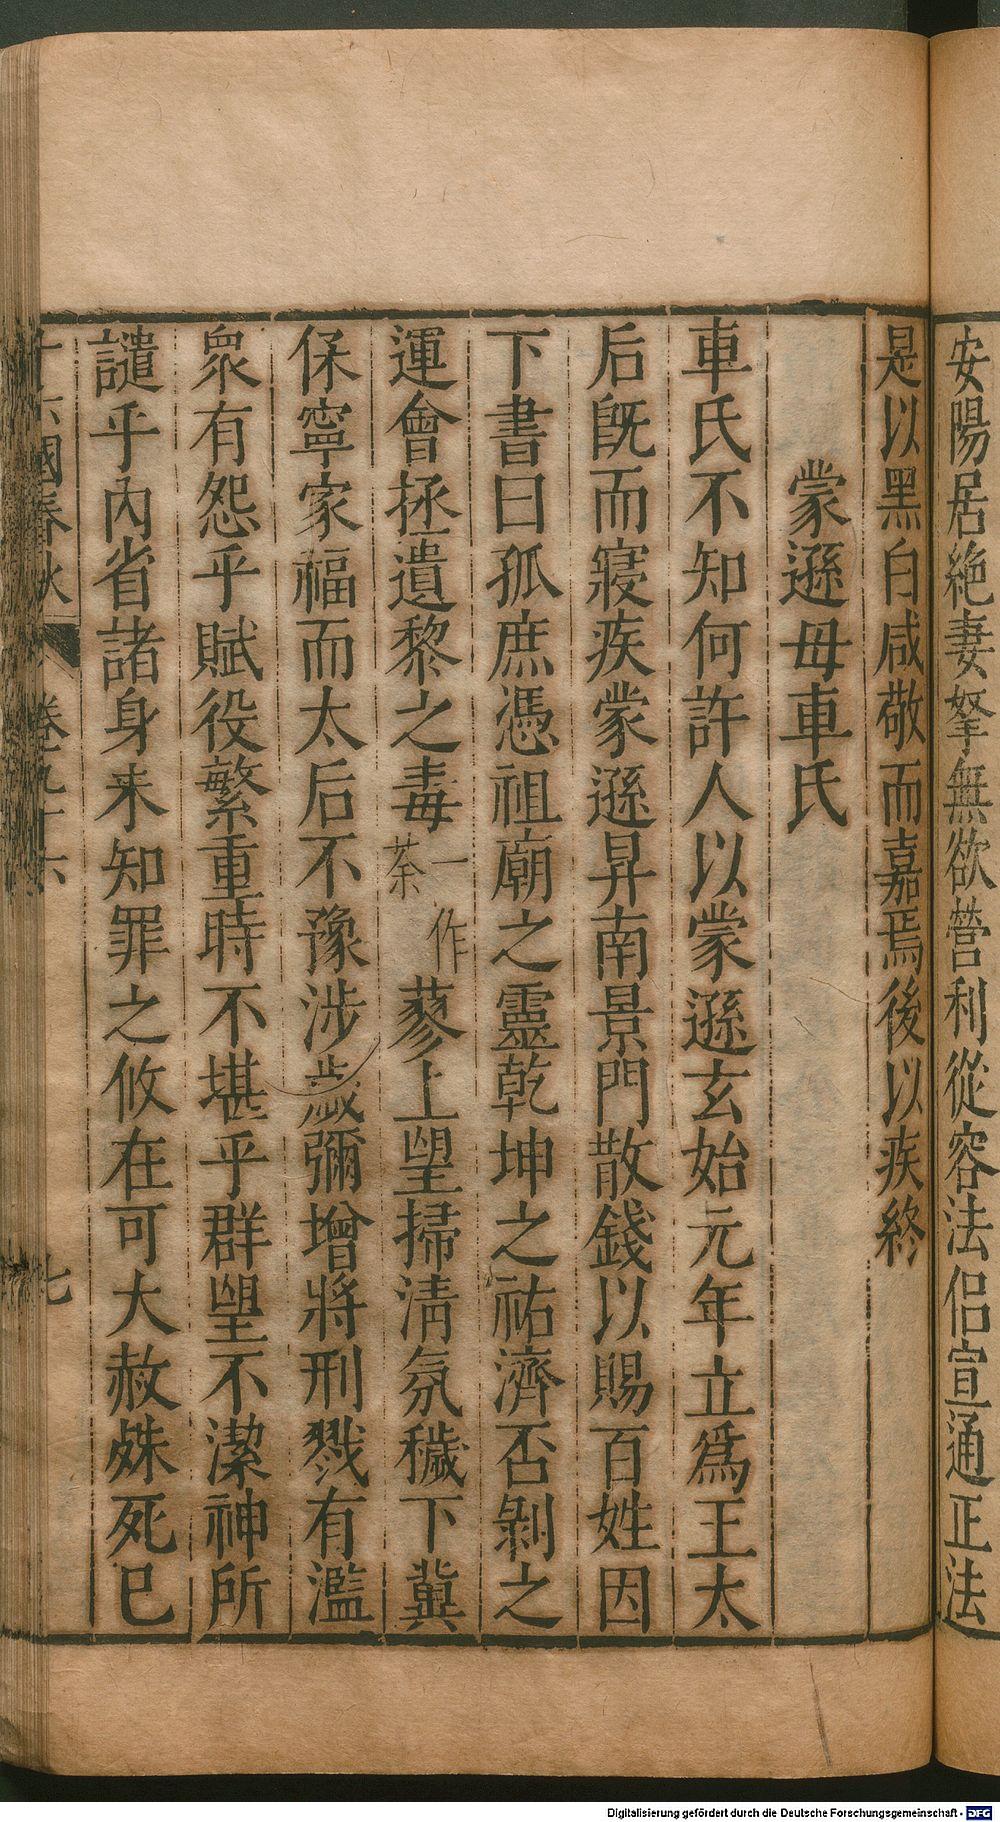 安陽居絶妻孥無欲營利從容法侣宣通正法
是以黑白咸敬而嘉焉後以疾終
蒙遜母車氏
車氏不知何許人以蒙遜玄始元年立爲王太
后旣而寢疾蒙遜昇南景門散錢以賜百姓因
下書曰孤庶憑祖廟之靈乾坤之祐濟否剝之
運會拯遺黎之毒一作荼蓼上望掃淸氛穢下冀
保寧家福而太后不豫涉歲彌增將刑戮有濫
衆有怨乎賦役繁重時不堪乎群望不潔神所
譴乎內省諸身未知罪之攸在可大赦殊死已
十六國春秋 卷九十六 七
Digitalisierung gefördert durch die Deutsche Forschungsgemeinschaft - DFG